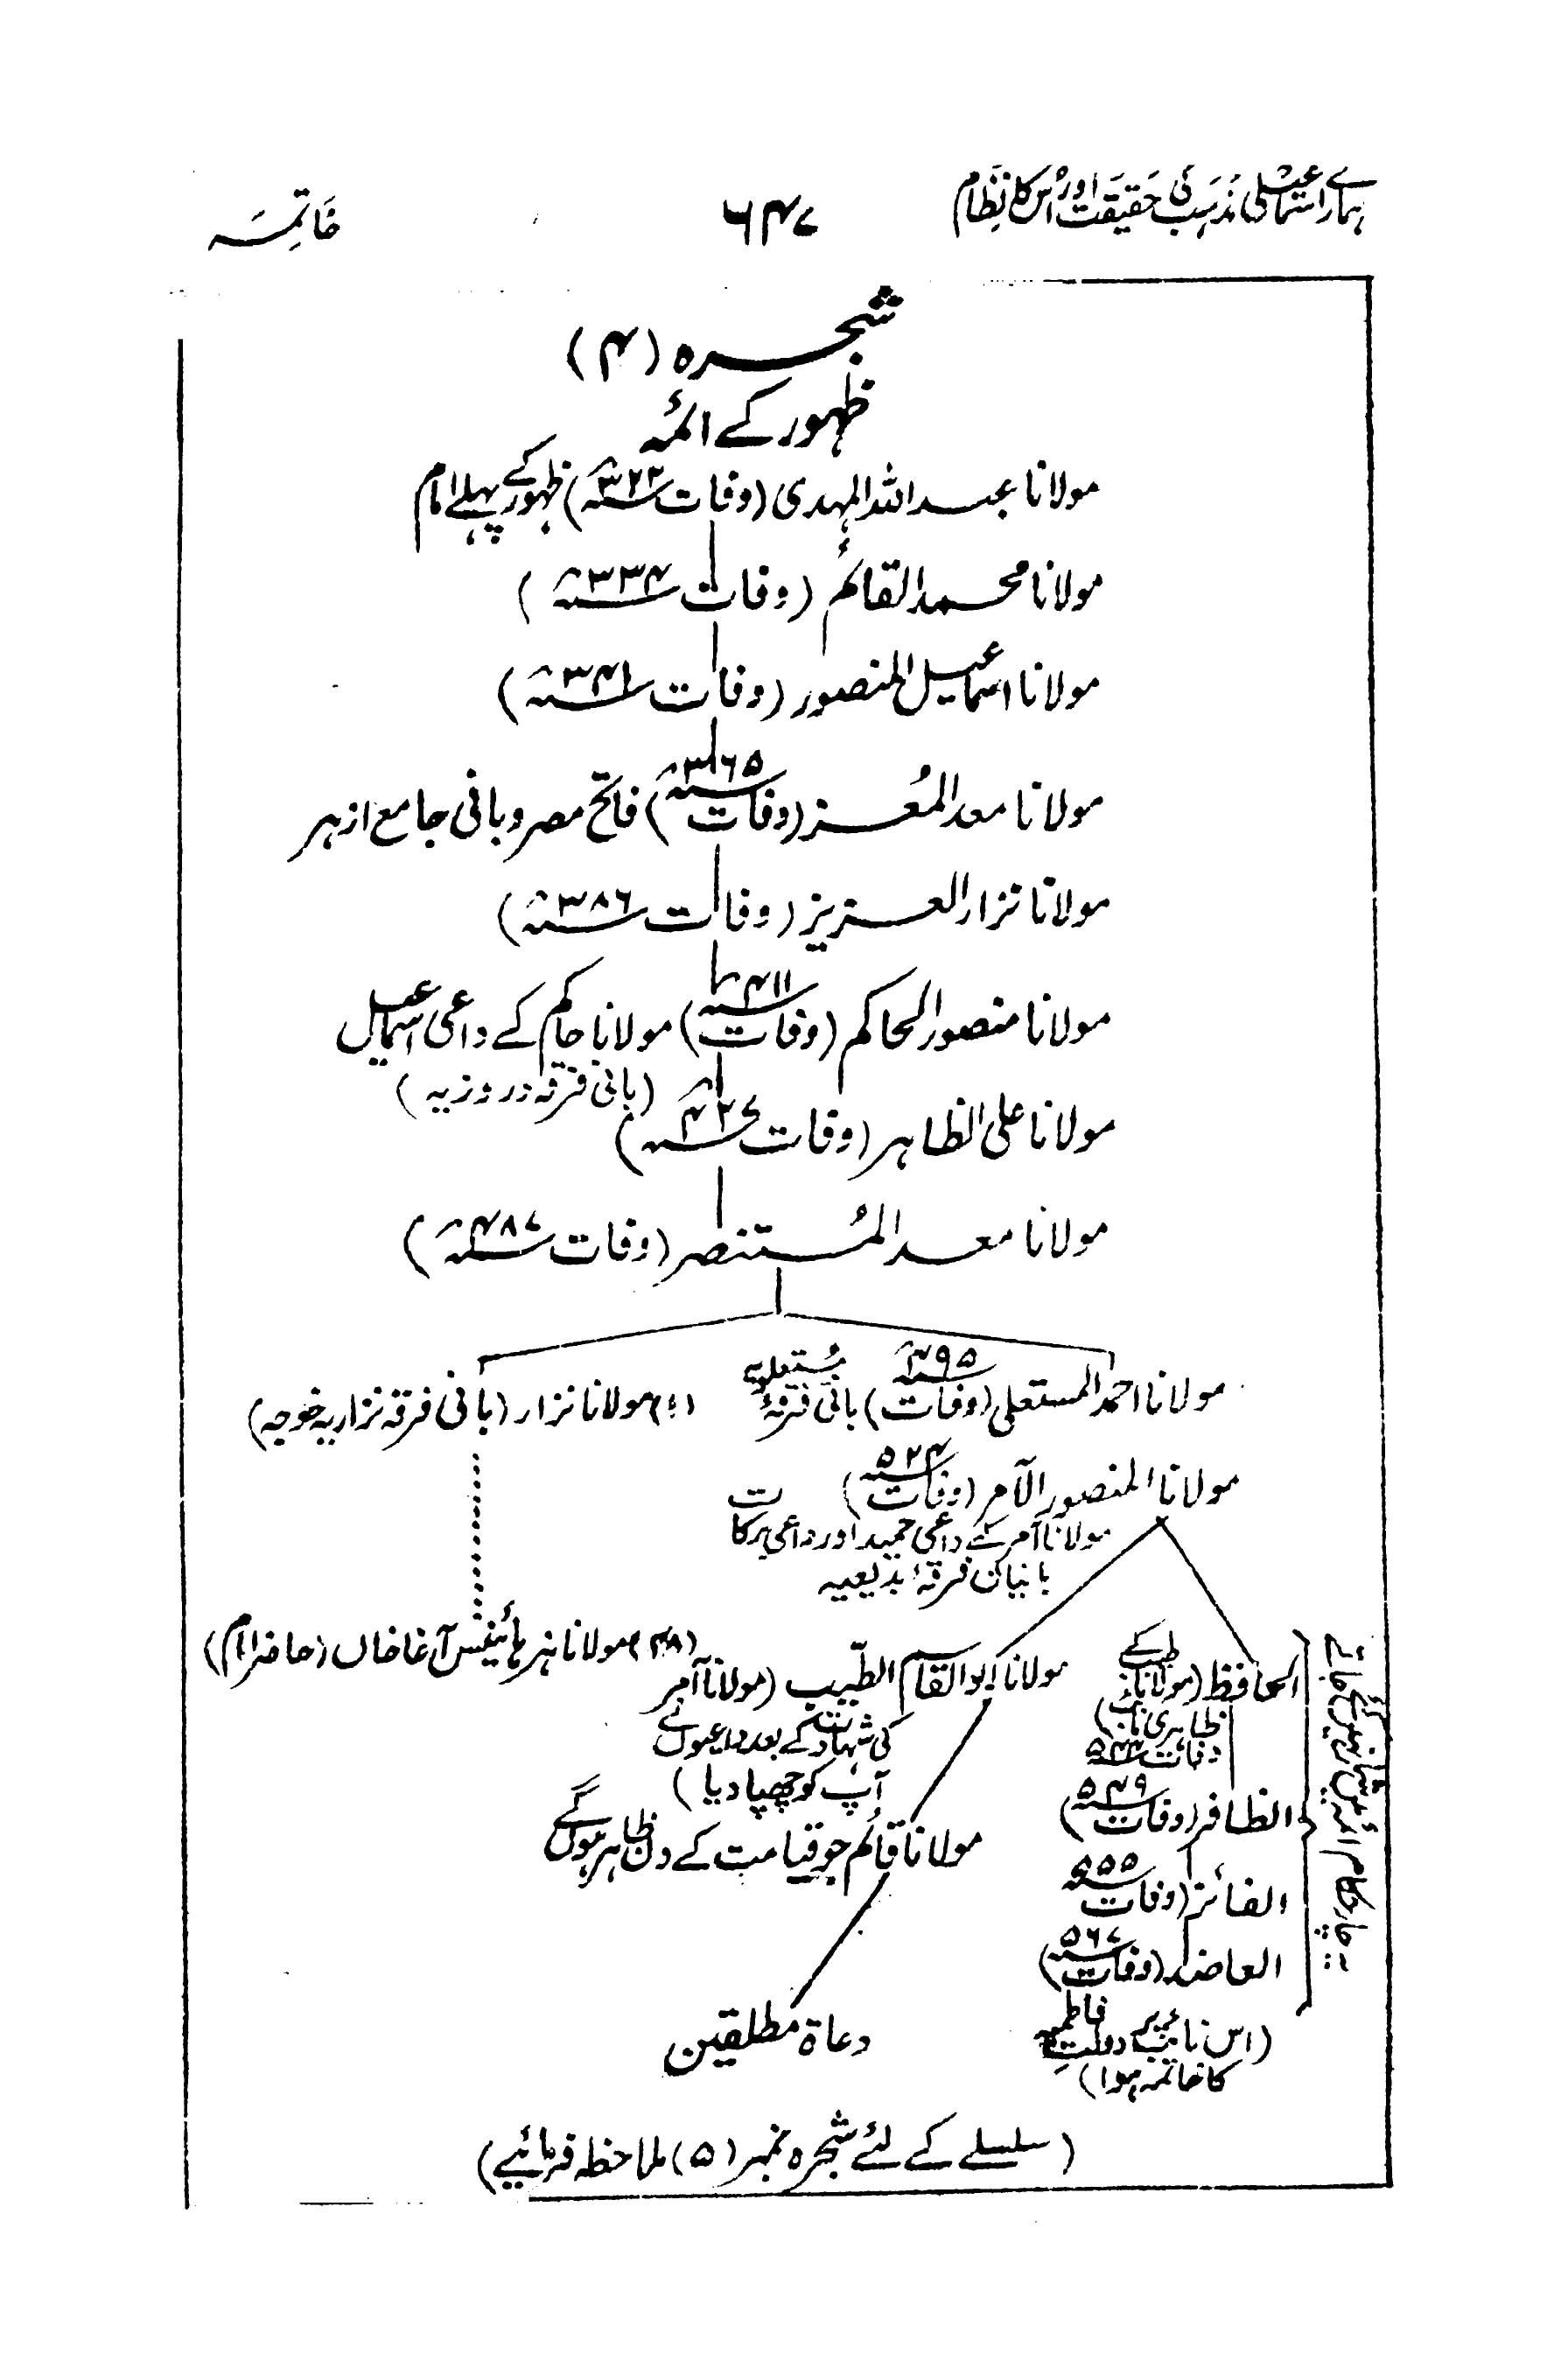 ہمارے اسماعیلی مذہب کی حقیقت اور اس کا نظام
۶۴۷
خاتمہ
شجرہ (۴)
ظہور کے ائمہ
مولانا عبد اللہ المہدی (وفات ۳۲۲ھ) ظہور کے پہلے امام
مولانا محمد القائم (وفات ۳۳۴ھ)
مولانا اسماعیل المنصور (وفات ۳۴۱ھ)
مولانا معد المُعز (وفات ۳۶۵ھ) فاتح مصر و بانی جامع ازہر
مولانا نزار العزیز (وفات ۳۸۶ھ)
مولانا منصور الحاکم (وفات ۴۱۱ھ) مولانا حاکم کے داعی اسماعیل
(بانی فرقہ دروزیہ)
مولانا علی الظاہر (وفات ۴۲۷ھ)
مولانا معد المُستنصر (وفات ۴۸۷ھ)
مولانا احمد المستعلی (وفات ۴۹۵ھ) بانی فرقۂ مُستعلویہ
مولانا نزار (بانی فرقہ نزاریہ خوجہ)
مولانا المنصور الآمر (وفات ۵۲۴)
مولانا آمر کے داعی حمید اور داعی برکات
بانیان فرقۂ بذیعیہ
(۴۸) مولانا ہز ہائینس آغا خاں (حاضر امام)
مولانا ابو القاسم الطّیب (مولانا آمر
کی شہادت کے بعد داعیوں نے
آپ کو چھپا دیا)
مولانا قائم جو قیامت کے دن ظاہر ہوں گے
دعاۃ مطلقین
الحافظ (مولانا طیب کے
ظاہری نائب)
وفات ۵۴۴
الظافر (وفات ۵۴۹)
الفائز (وفات ۵۵۵
العاضد (وفات ۵۶۷)
(اس نائب پر دولتِ فاطمیہ
کا خاتمہ ہوا)
یہ چار حکام ائمہ میں شمار نہیں کئے جاتے
(سلسلے کے لئے شجرہ نمبر (۵) ملاحظہ فرمائیے)